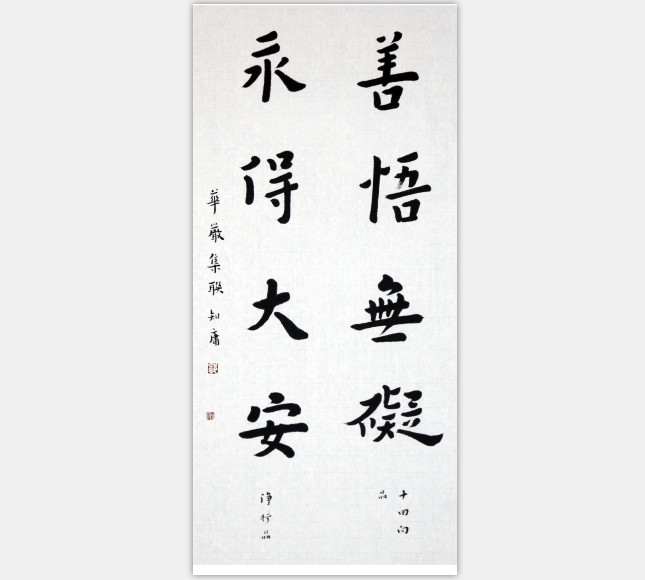 善悟無礙
十回向
品
永得大安
淨行品
華嚴集聯 知庸